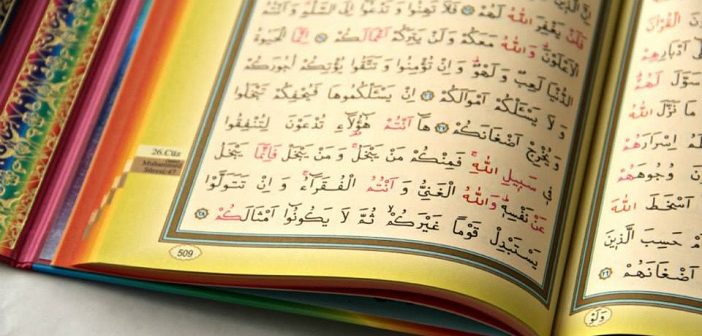 فَلَنْ يَغْفِرَ اللّٰهُ لَهُمْ فَلَا تَهِنُوا وَتَدْعُٓوا اِلَى السَّلْمِ وَاَنْتُمُ
الْاَعْلَوْنَ وَاللّٰهُ مَعَكُمْ وَلَنْ يَتِرَكُمْ اَعْمَالَكُمْ ﴿٣٥﴾ اِنَّمَا الْحَيٰوةُ
الدُّنْيَا لَعِبٌ وَلَهْوٌ وَاِنْ تُؤْمِنُوا وَتَتَّقُوا يُؤْتِكُمْ اُجُورَكُمْ
وَلَا يَسْـَٔلْكُمْ اَمْوَالَكُمْ ﴿٣٦﴾ اِنْ يَسْـَٔلْكُمُوهَا فَيُحْفِكُمْ تَبْخَلُوا
وَيُخْرِجْ اَضْغَانَكُمْ ﴿٣٧﴾ هَٓا اَنْتُمْ هٰٓؤُ۬لَٓاءِ تُدْعَوْنَ لِتُنْفِقُوا
ف۪ي سَب۪يلِ اللّٰهِ فَمِنْكُمْ مَنْ يَبْخَلُ وَمَنْ يَبْخَلْ فَاِنَّمَا يَبْخَلُ
عَنْ نَفْسِه۪ وَاللّٰهُ الْغَنِيُّ وَاَنْتُمُ الْفُقَرَٓاءُ وَاِنْ تَتَوَلَّوْا
يَسْتَبْدِلْ قَوْمًا غَيْرَكُمْ ثُمَّ لَا يَكُونُٓوا اَمْثَالَكُمْ ﴿٣٨﴾
26. Cüz
Sûresi/47
509
الْقُرْاٰنَ
سَوَّلَ لَهُمْ
مَا نَزَّلَ اللّٰهُ
اِسْرَارَهُمْ
وُجُوهَهُمْ
اَسْخَطَ اللّٰهَ
حَسِبَ الَّذ۪ينَ
اَضْغَانَهُمْ ﴿٢٩﴾
وَلَوْ